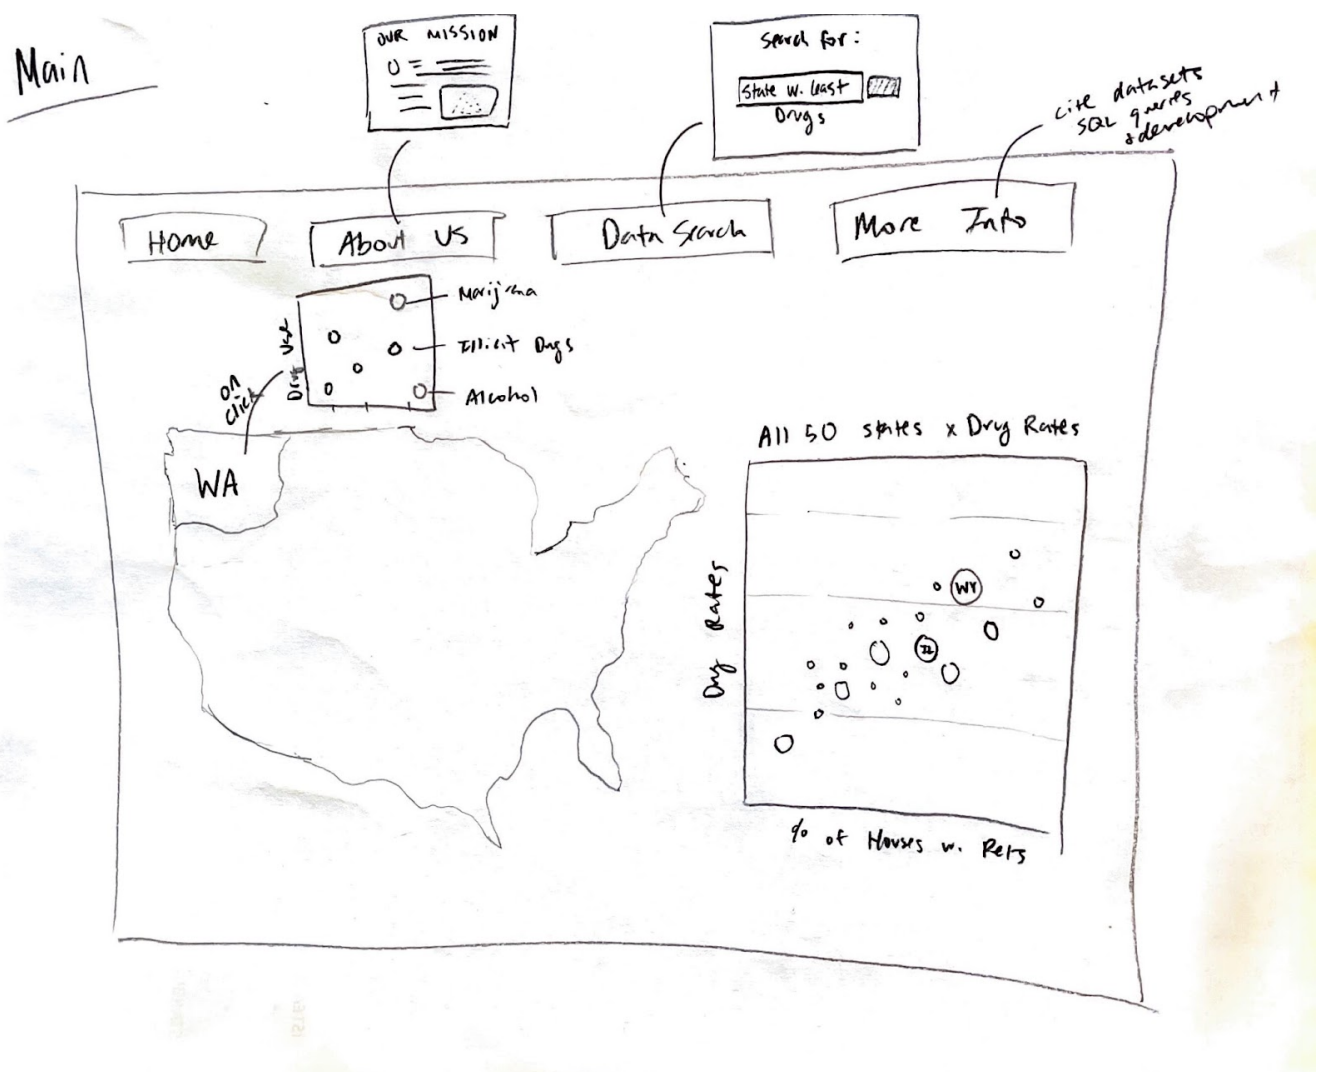 Main
OUR MISSION
Search for:
State w. least
Drugs
cite datasets
SQL queries
+ development
Home
About Us
Data Search
More Info
Marijuana
Illicit Drugs
Alcohol
Drug Use
on
click
WA
All 50 states x Drug Rates
WY
IL
Drug Rates
% of Houses w. Pets